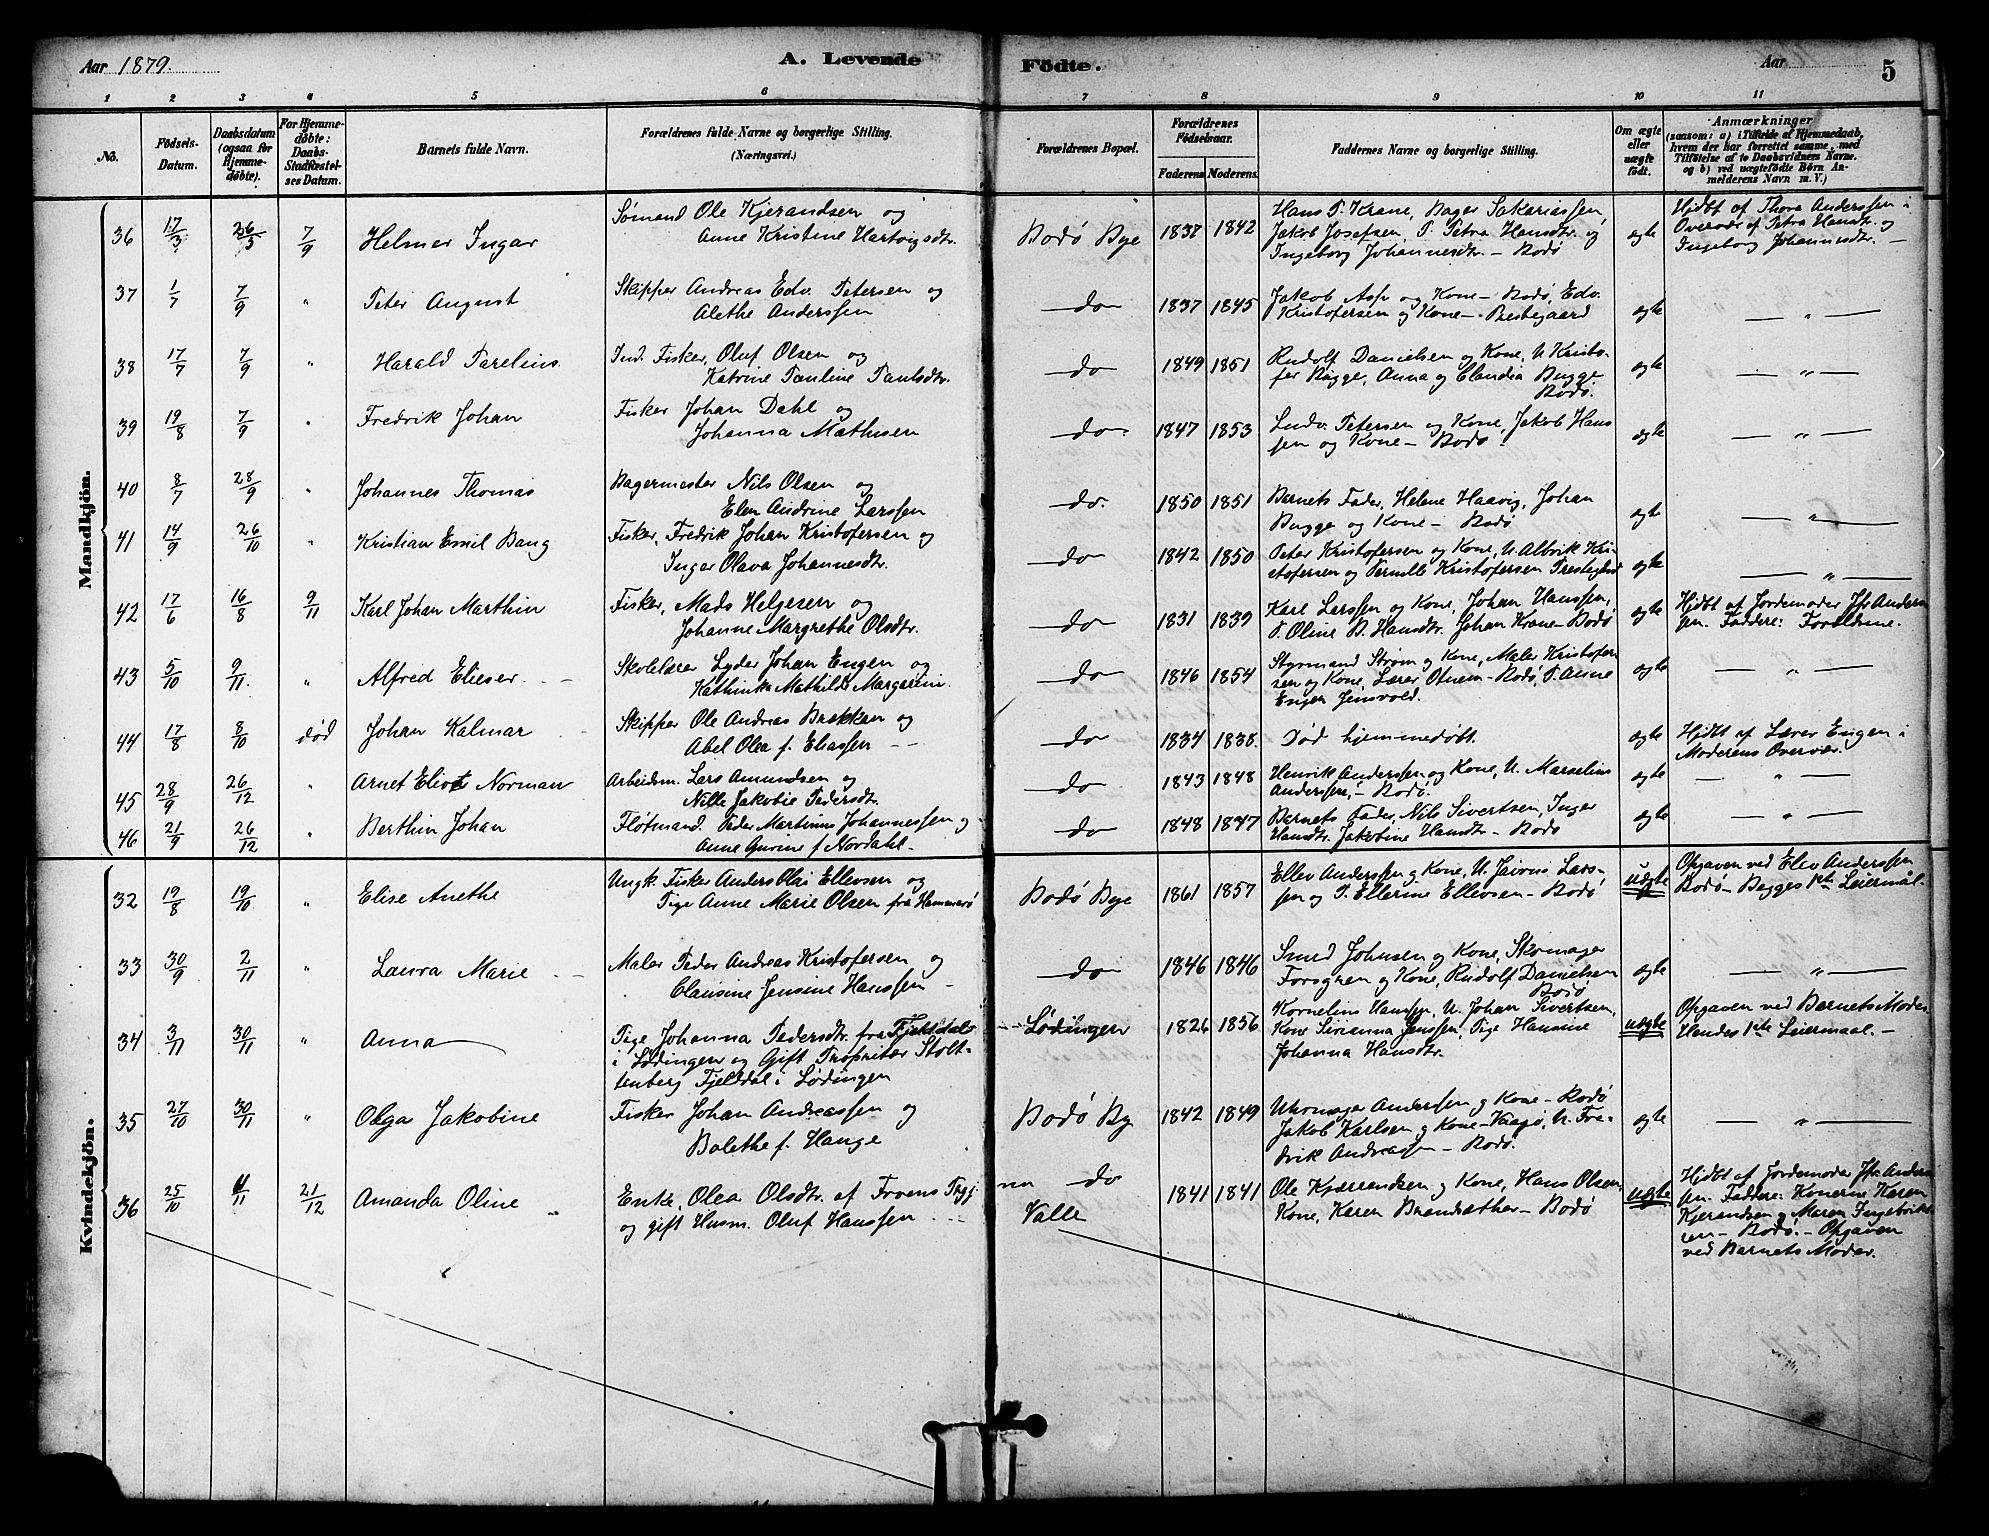 Aar 1879.
A. Levende Födte.
Aar
5
1 2 3 4 5 6 7 8 9 10 11
No.
Födsels-Datum.
Daabsdatum (ogsaa for Hjemmedöbte).
For Hjemmedöbte: Daabs-Stadfæstelses Datum.
Barnets fulde Navn.
Forældrenes fulde Navne og borgerlige Stilling.
(Næringsvei.)
Forældrenes Bopæl.
Forældrenes Födselsaar.
Faderens. Moderens.
Faddernes Navne og borgerlige Stilling.
Om ægte eller uægte födt.
Anmærkninger
(saasom: a) i Tilfælde af Hjemmedaab, hvem der har forrettet samme, med Tilföielse af to Daabsvidners Navne. og b) ved uægtefödte Börn Anmelderens Navn m. V.)
Mandkjön.
36 17/3 26/3 7/9 Helmer Ingar
Sømand Ole Kjerandsen og
Anne Kristine Hartvigsdtr.
Bodö Bye 1837 1842
Hans P. Krane, Bager Sakariassen,
Jakob Josefsen, P. Petra Hansdtr. og
Ingeborg Johannesdtr. - Bodö
ægte
Hjdbt af Thora Anderssen i
Overvær af Petra Hansdtr. og
Ingeborg Johannesdtr. -
37 1/7 7/9 " Peter August
Skipper Andreas Edv. Petersen og
Alethe Anderssen
do 1837 1845
Jakob Asp og Kone - Bodö, Edv.
Kristofersen og Kone - Prestegaard
ægte - " -
38 17/7 7/9 " Harald Parelius
Ind. Fisker, Oluf Olsen og
Katrine Pauline Paulsdtr.
do 1849 1851
Rudolf Danielsen og Kone, U. Kristofer
Bugge, Anna og Claudia Bugge
Bodö.
ægte - " -
39 19/8 7/9 " Fredrik Johan
Fisker Johan Dahl og
Johanna Mathisen
do 1847 1853
Ludv. Petersen og Kone, Jakob Hanssen
og Kone - Bodö
ægte - " -
40 8/7 28/9 " Johannes Thomas
Bagermester Nils Olsen og
Elen Andrine Larssen
do 1850 1851
Barnets Fader, Helene Haavig, Johan
Bugge og Kone - Bodö
ægte - " -
41 14/9 26/10 " Kristian Emil Bang
Fisker, Fredrik Johan Kristofersen og
Inger Olava Johannesdtr.
do 1842 1850
Peter Kristofersen og Kone, U. Albrik Kristofersen
og Pernille Kristofersen Prestegård
ægte - " -
42 17/6 16/8 9/11 Karl Johan Marthin
Fisker, Mads Helgesen og
Johanne Margrethe Olsdtr.
do 1831 1839
Karl Larssen og Kone, Johan Hanssen,
P. Oline B. Hansdtr. Johan Krane - Bodö
ægte
Hjdbt af Jordemoder Jfr Anderssen.
Faddere: Forældrene.
43 5/10 9/11 " Alfred Elieser
Skolelærer Lyder Johan Engen og
Kathinka Mathilde Margareni.
do 1846 1854
Styrmand Strøm og Kone, Maler Kristofersen
og Kone, Lærer Otnem - Bodö, P. Anne
Engen Jensvold.
ægte - " -
44 17/8 8/10 død Johan Kalmar
Skipper Ole Andreas Brekken og
Abel Olea f. Eliassen
do 1834 1838.
Død hjemmedöbt.
ægte
Hjdbt af Lærer Engen i
Moderens Overvær.
45 28/9 26/12 " Arnet Eliot Norman
Arbeidsm. Lars Amundsen og
Nille Jakobie Pedersdtr.
do 1843 1848
Henrik Anderssen og Kone, U. Marselius
Anderssen, - Bodö.
ægte - " -
46 21/9 26/12 " Berthin Johan
Fløtmand. Peder Martinus Johannessen og
Anne Gurine f. Nordahl -
do 1848 1847
Barnets Fader, Nils Sivertsen, Inger
Hansdtr. Jakobine Hansdtr. - Bodö
ægte - " -
Kvindekjön.
32 19/8 19/10 " Elise Anethe
Ungk. Fisker Anders Olai Ellevsen og
Pige Anne Marie Olsen fra Hammerö
Bodö Bye 1861 1857
Ellev Anderssen og Kone, U. Jairus Larssen
og P. Ellerine Ellevsen - Bodö
uægte
Opgaven ved Elev Anderssen
Bodö - Begges 1ste Leiermål -
33 30/9 2/11 " Laura Marie
Maler Peder Andreas Kristofersen og
Clausine Jensine Hanssen -
do 1846 1846
Smed Johnsen og Kone, Skomager
Forsgren og Kone, Rudolf Danielsen
Bodö
ægte - " -
34 3/11 30/11 " Anna
Pige Johanna Pedersdtr. fra Fjeldal
i Lødingen og Gift Proprietær Stoltenberg
Fjeldal i Lödingen
Lødingen 1826 1856
Kornelius Hanssen, U. Johan Sivertsen,
Kone Sirianna Jenssen, Pige Hansine
Johanna Hansdtr.
uægte
Opgaven ved Barnets Moder
Hendes 1ste Leiermaal. -
35 27/10 30/11 " Olga Jakobine
Fisker Johan Andreassen og
Bolethe f. Hauge
Bodö By 1842 1849
Uhrmager Anderssen og Kone - Bodö
Jakob Karlsen og Kone - Vaagö, U. Fredrik
Andreassen - Bodö.
ægte - " -
36 25/10 4/11 21/12 Amanda Oline
Enke, Olea Olsdtr. af Froens Prgj.
og gift Husm. Oluf Hanssen
do
Valle
1841 1841
Ole Kjærrandsen og Kone, Hans Olsen,
Kone, Karen Brandsæther - Bodö
uægte
Hjdbt af Jordemoder Jfr Anderssen.
Faddere: Konerne Karen
Kjerandsen og Maren Ingebrigtsen
- Bodö. - Opgaven
ved Barnets Moder.